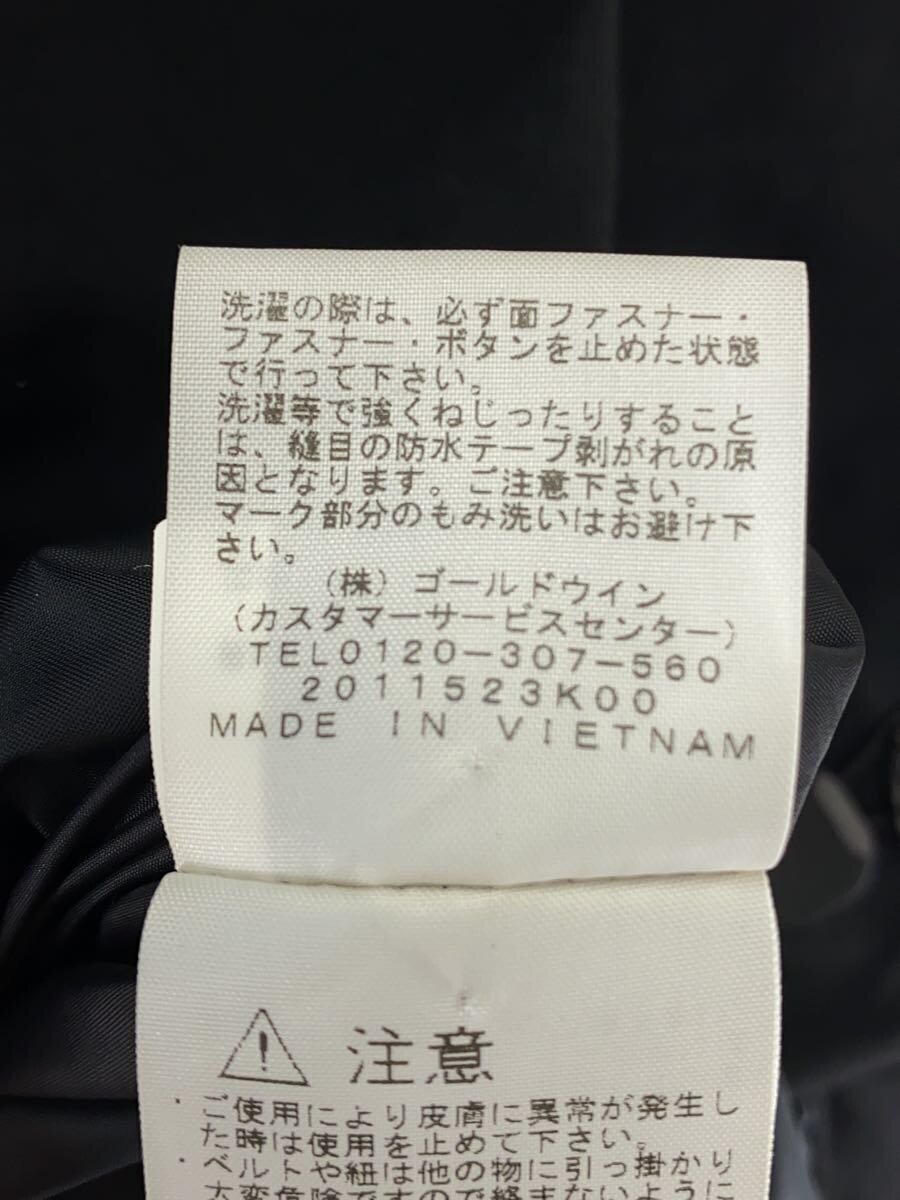 洗濯の際は、必ず面ファスナー・
ファスナー・ボタンを止めた状態
で行って下さい。
洗濯等で強くねじったりすること
は、縫目の防水テープ剥がれの原
因となります。ご注意下さい。
マーク部分のもみ洗いはお避け下
さい。
（株）ゴールドウイン
（カスタマーサービスセンター）
TEL0120-307-560
2011523K00
MADE IN VIETNAM
注意
・ご使用により皮膚に異常が発生し
た時は使用を止めて下さい。
・ベルトや紐は他の物に引っ掛かり
大変危険ですので絡まないように